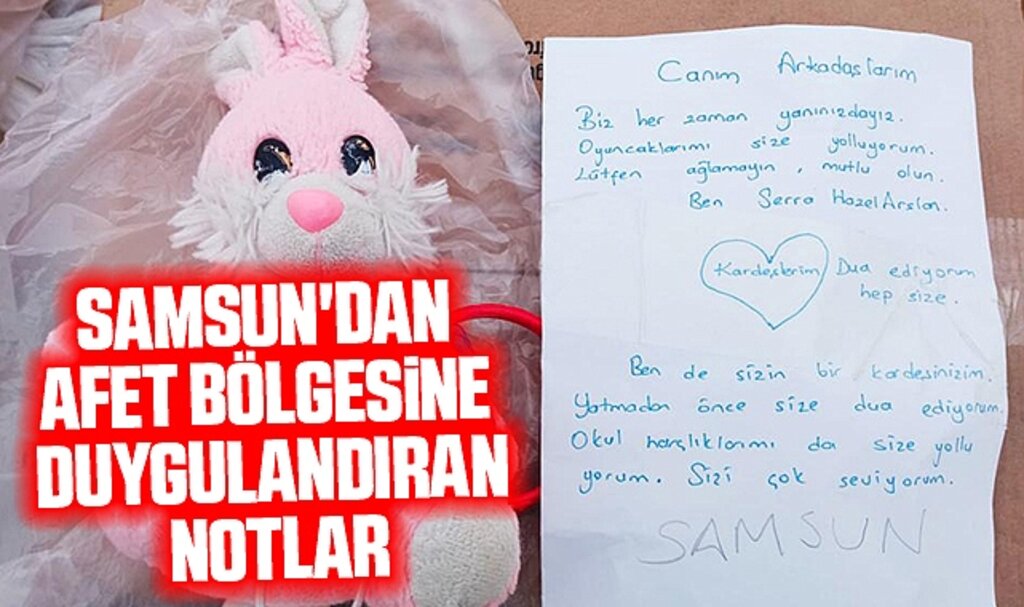 SAMSUN'DAN
AFET BÖLGESİNE
DUYGULANDIRAN
NOTLAR
Canım Arkadaşlarım
Biz her zaman yanınızdayız.
Oyuncaklarımı size yolluyorum.
Lütfen ağlamayın, mutlu olun.
Ben Serra Hazel Arslan.
Kardeşlerim Dua ediyorum
hep size.
Ben de sizin bir kardeşinizim.
Yatmadan önce size dua ediyorum.
Okul harçlıklarımı da size yollu
yorum. Sizi çok seviyorum.
SAMSUN